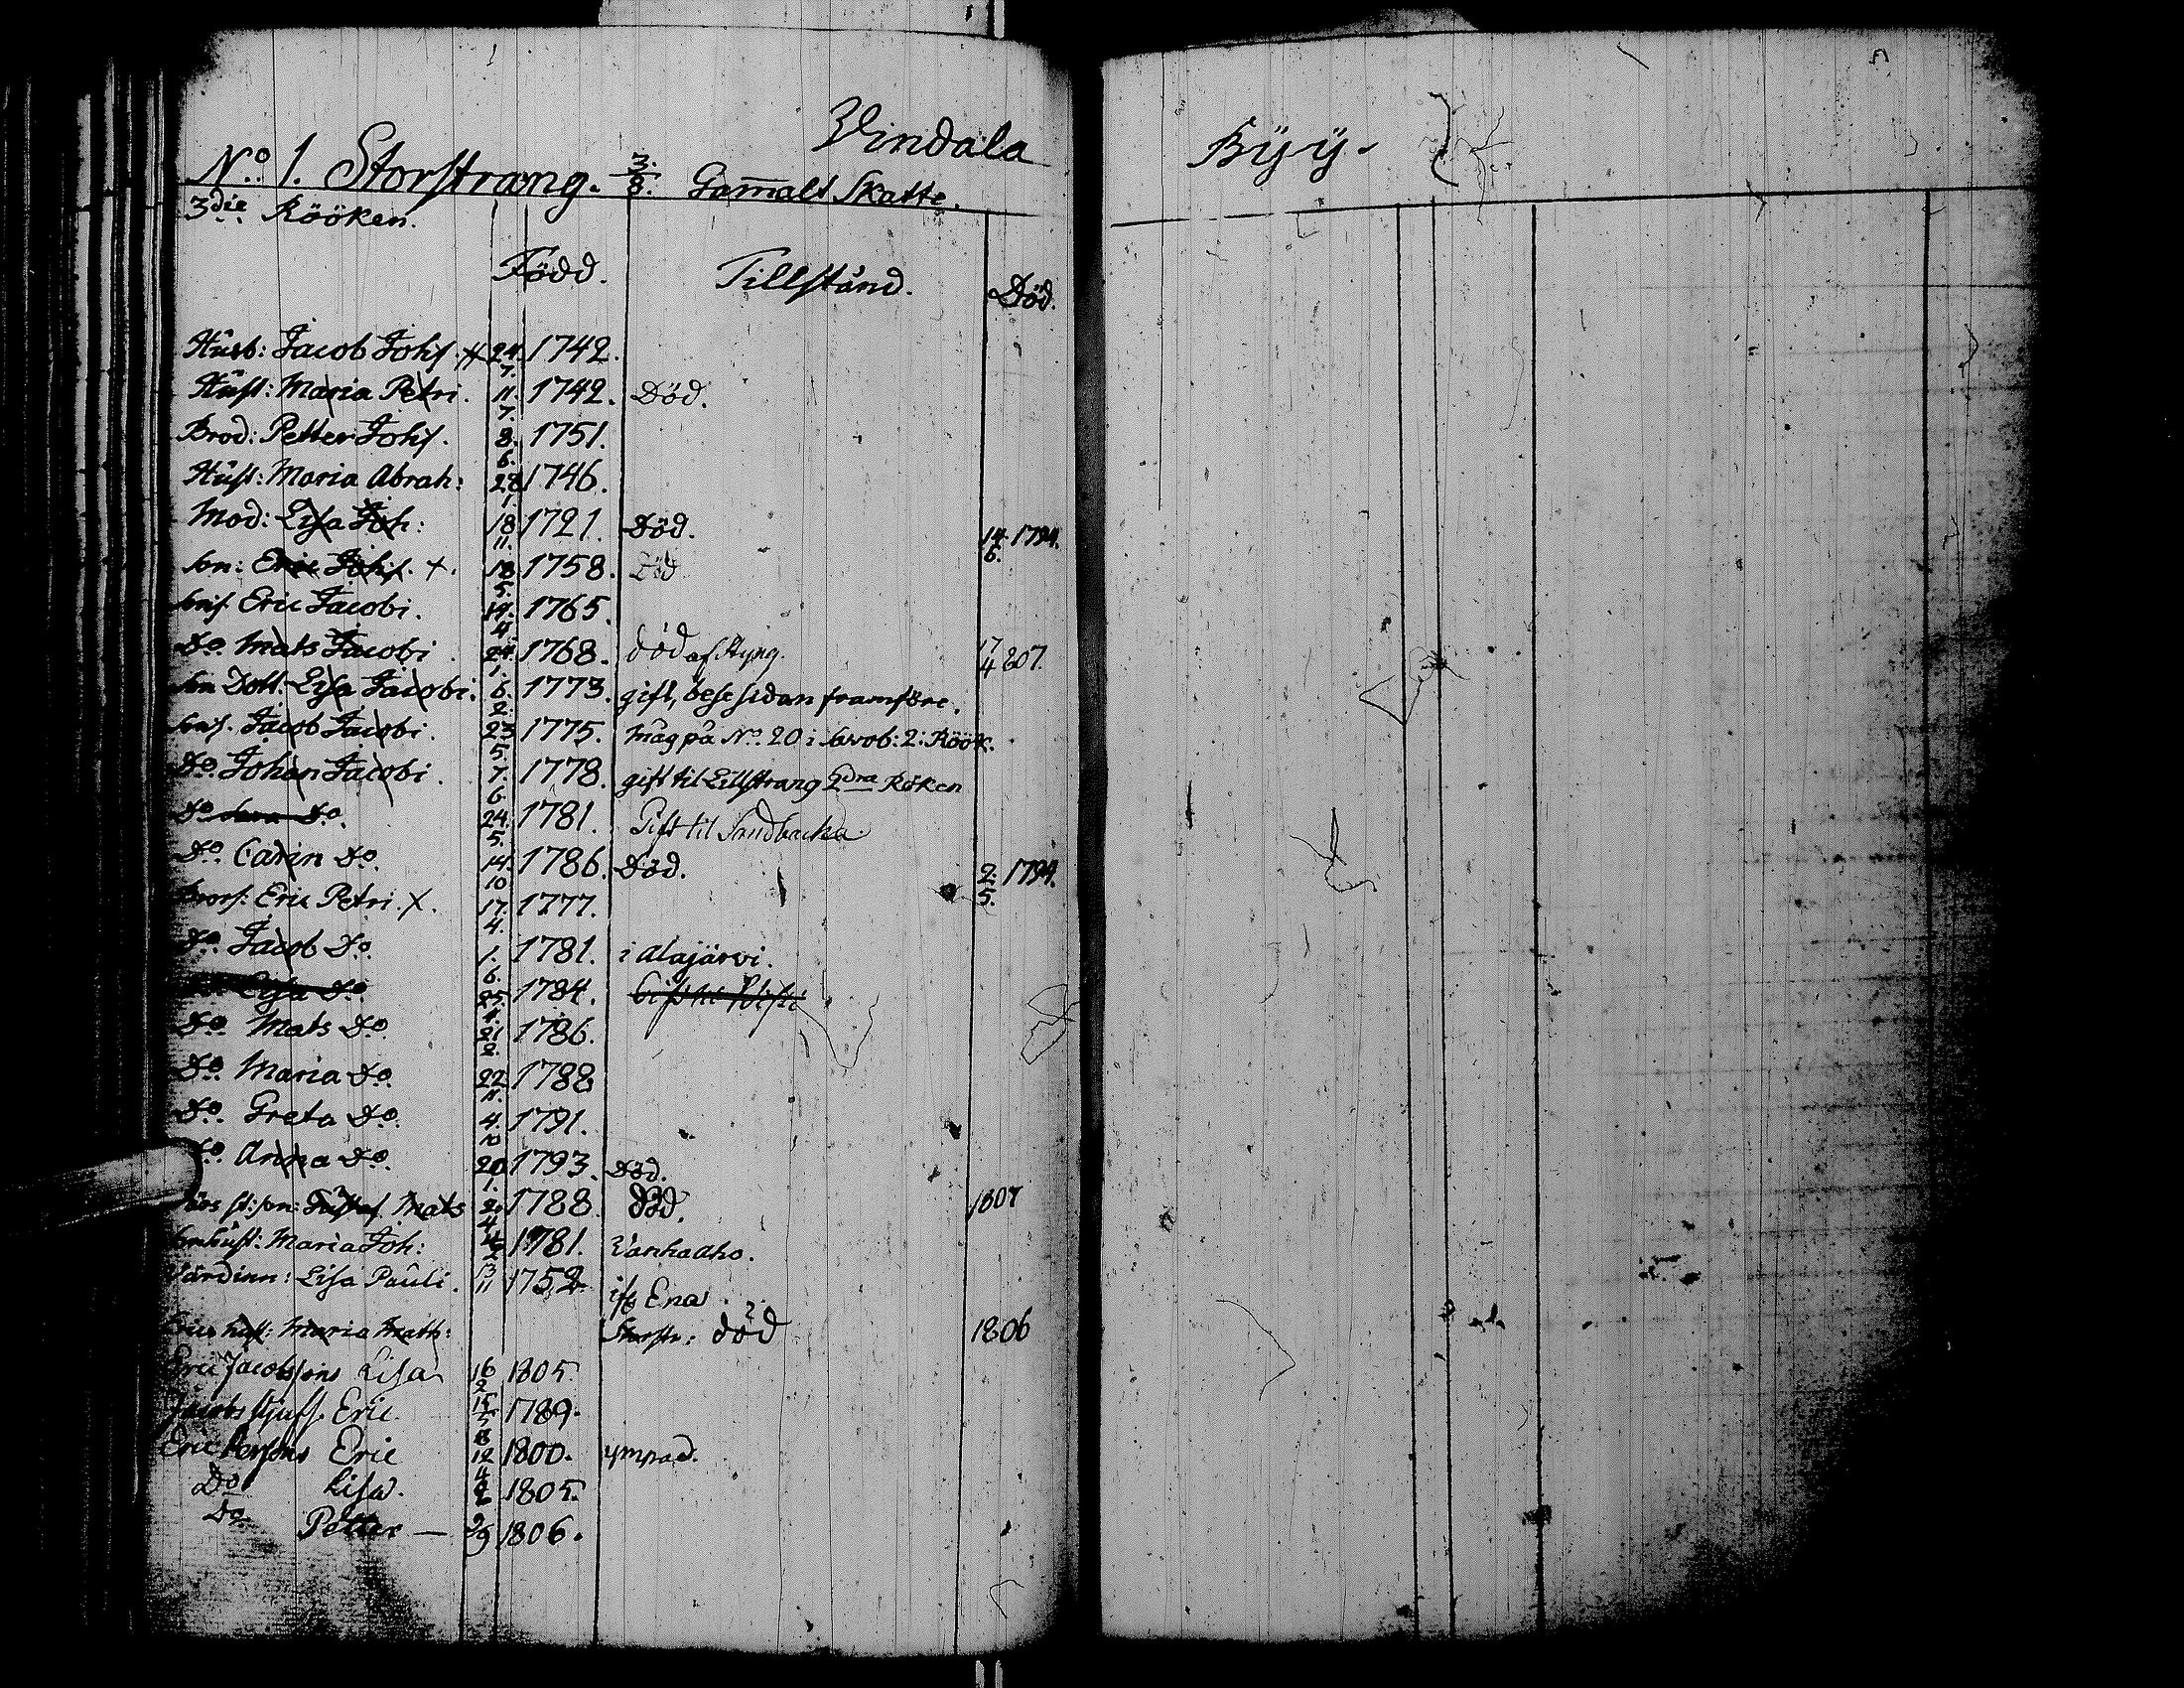 Vindala Byy.
No. 1. Storstrang. 3/8. Gam̅alt Skatte.
3die Rööken.
Född. Tillstånd. Död.
Husb: Jacob Johs. 24/7. 1742.
Hust: Maria Petri. 11/7. 1742. Död.
Brod: Petter Johs. 8/6. 1751.
Hust: Maria Abrah: 28/1. 1746.
Mod: Lisa Joh: 18/11. 1721. Död. 14/6. 1794.
son: Eric Johs. +. 18/5. 1758. Död
sons. Eric Jacobi. 19/4. 1765.
Do. Mats Jacobi. 24/1. 1768. död af Styng. 17/4 807.
Dott. Lisa Jacobi. 6/2. 1773. gift, bese sidan framföre.
sons. Jacob Jacobi. 23/5. 1775. Måg på No. 20 i 2: Röök.
Do. Johan Jacobi. 7/6. 1778. gift til Lillstrang 2dra Röken
Do Do. 24/5. 1781. Gift til Sandbacka
Do. Carin Do. 14/10 1786. Död. 2/5. 1794.
brors: Eric Petri. X. 17/4. 1777.
Do. Jacob Do. 1/6. 1781. i Alajärvi.
Lisa Do. 25. 1784. Gift til
Do. Mats Do. 21/2. 1786.
Do. Maria Do. 22/11. 1788
Do. Greta Do. 4/10 1791.
Do. Anna Do. 20/1. 1793. Död.
st: son: Gustaf Mats 2/4 1788. död. 1807
sonhust: Maria Joh: 1781. Vanhaaho.
Värdinn: Lisa Pauli. 13/11 1752. ifr Ena
Erics hust: Maria Matts: Storstr: död 1806
Eric Jacobssons Lisa 16/2 1805.
Jacobs Eric. 15/5 1789.
Eric Perssons Eric 8/12 1800. ympad.
Do Lisa. 4 1805.
Do Petter — 9/9 1806.